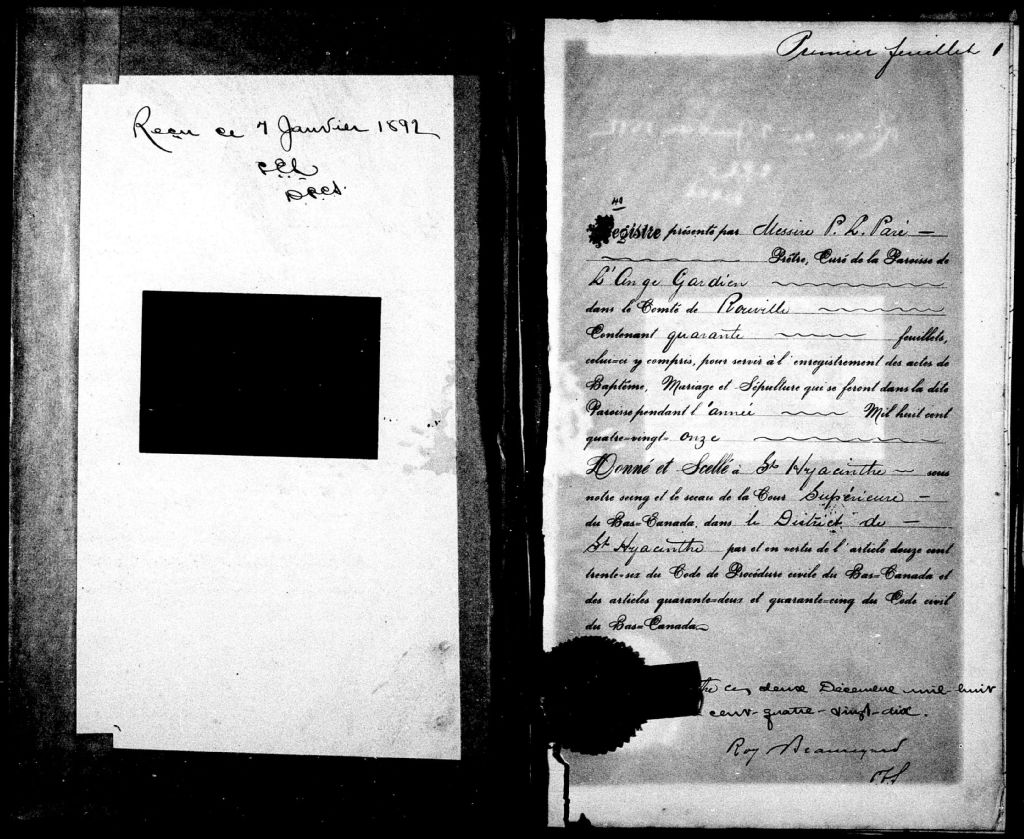 Reçu ce 7 Janvier 1892
D.P.C.S.
Premier feuillet 1
Registre présenté par Messire P. L. Paré
Prêtre, Curé de la Paroisse de
L'Ange Gardien
dans le Comté de Rouville
Contenant quarante feuillets,
celui-ci y compris, pour servir à l'enregistrement des actes de
Baptême, Mariage et Sépulture qui se feront dans la dite
Paroisse pendant l'année Mil huit cent
quatre-vingt-onze
Donné et Scellé à St Hyacinthe sous
notre seing et le sceau de la Cour Supérieure
du Bas-Canada, dans le District de
St Hyacinthe par et en vertu de l'article douze cent
trente-six du Code de Procédure civile du Bas-Canada et
des articles quarante-deux et quarante-cinq du Code civil
du Bas-Canada
ce deux Décembre mil-huit
cent-quatre-vingt-dix.
Roy Beauregard